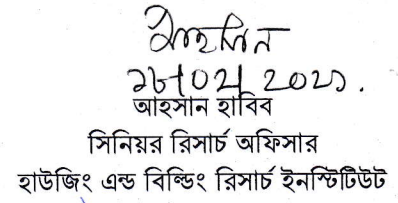 আহসান
আহসান হাবিব
সিনিয়র রিসার্চ অফিসার
হাউজিং এন্ড বিল্ডিং রিসার্চ ইনস্টিটিউট